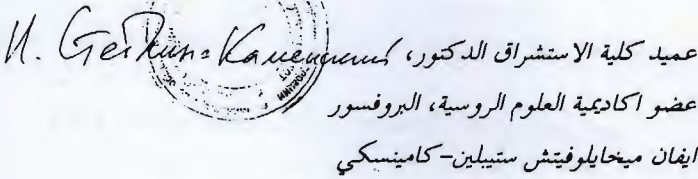 عميد كلية الاستشراق الدكتور،
عضو اكاديمية العلوم الروسية، البروفسور
ايفان ميخايلوفيتش ستيبلين-كامينسكي